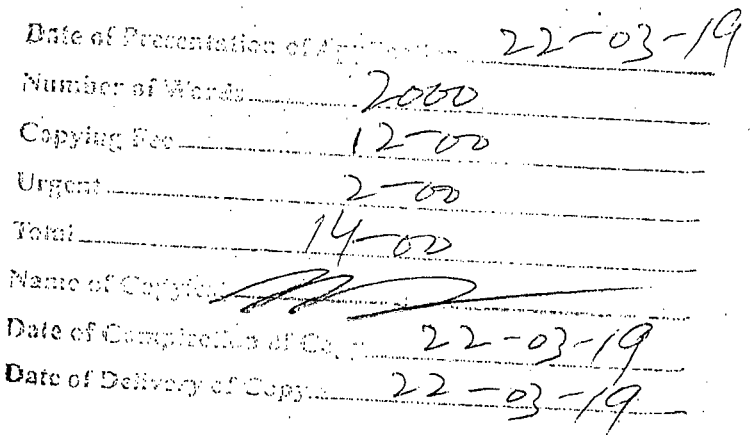 Date of Presentation of Application 22-03-19
Number of Words 2000
Copying Fee 12-00
Urgent 2-00
Total 14-00
Name of Copyist
Date of Completion of Copy 22-03-19
Date of Delivery of Copy 22-03-19